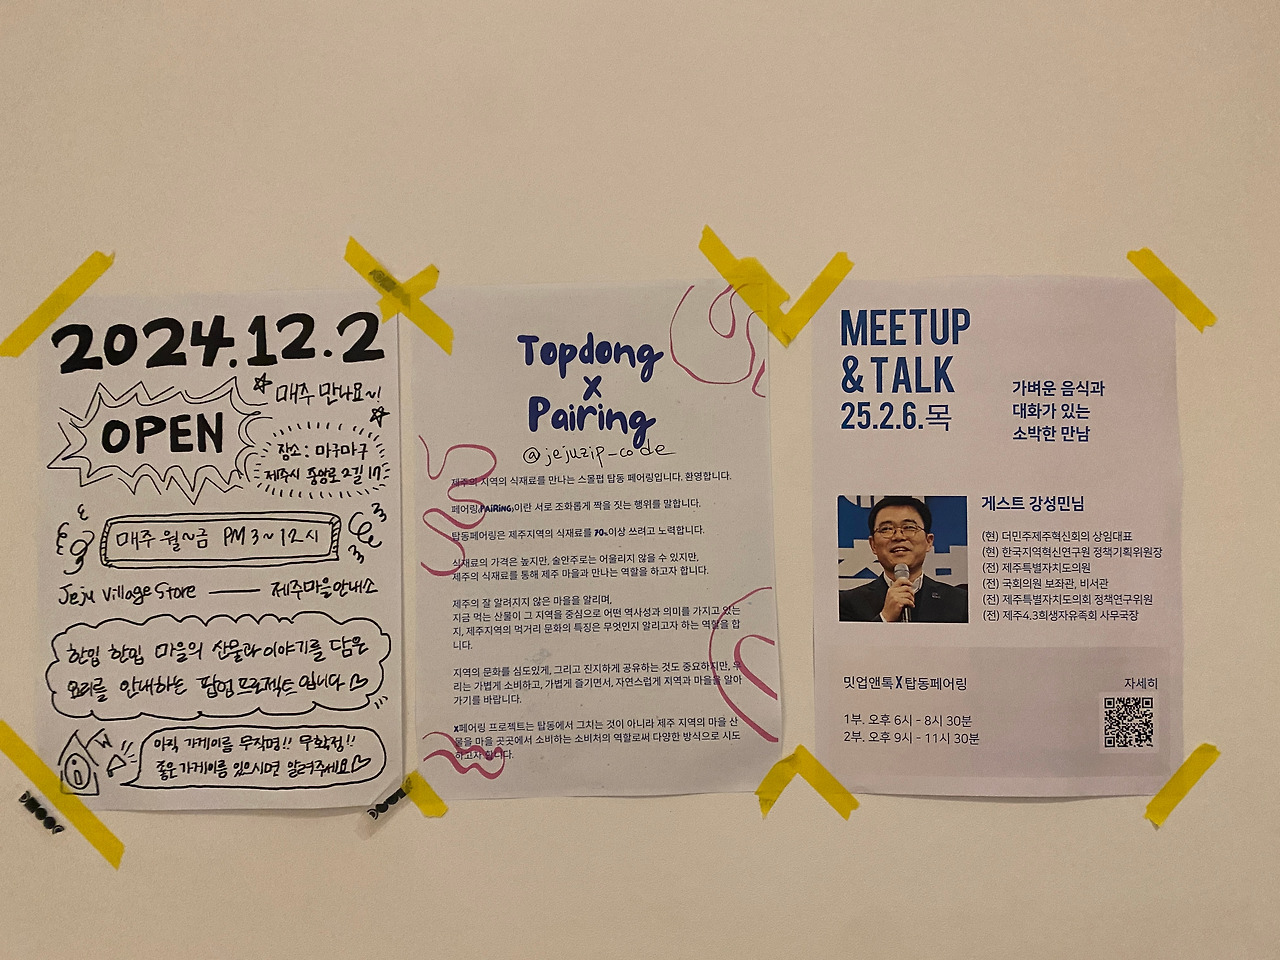 2024.12.2
OPEN
매주 만나요~!
장소 : 마구마구
제주시 중앙로 2길 17
매주 월~금 PM 3~12시
Jeju Village Store — 제주마을안내소
한입 한입 마을의 산물과 이야기를 담은
요리를 안내하는 팝업 프로젝트입니다
아직 가게이름 무작명!! 무확정!!
좋은 가게이름 있으시면 알려주세요
Topdong
X
Pairing
@jejuzip_code
제주의 지역의 식재료를 만나는 스몰펍 탑동 페어링입니다. 환영합니다.
페어링(PAIRING)이란 서로 조화롭게 짝을 짓는 행위를 말합니다.
탑동페어링은 제주지역의 식재료를 70%이상 쓰려고 노력합니다.
식재료의 가격은 높지만, 술안주로는 어울리지 않을 수 있지만,
제주의 식재료를 통해 제주 마을과 만나는 역할을 하고자 합니다.
제주의 잘 알려지지 않은 마을을 알리며,
지금 먹는 산물이 그 지역을 중심으로 어떤 역사성과 의미를 가지고 있는
지, 제주지역의 먹거리 문화의 특징은 무엇인지 알리고자 하는 역할을 합
니다.
지역의 문화를 심도있게, 그리고 진지하게 공유하는 것도 중요하지만, 우
리는 가볍게 소비하고, 가볍게 즐기면서, 자연스럽게 지역과 마을을 알아
가기를 바랍니다.
X페어링 프로젝트는 탑동에서 그치는 것이 아니라 제주 지역의 마을 산
물을 마을 곳곳에서 소비하는 소비처의 역할로써 다양한 방식으로 시도
하고자 합니다.
MEETUP
& TALK
25.2.6.목
가벼운 음식과
대화가 있는
소박한 만남
게스트 강성민님
(현) 더민주제주혁신회의 상임대표
(현) 한국지역혁신연구원 정책기획위원장
(전) 제주특별자치도의원
(전) 국회의원 보좌관, 비서관
(전) 제주특별자치도의회 정책연구위원
(전) 제주4.3희생자유족회 사무국장
밋업앤톡 X 탑동페어링
자세히
1부. 오후 6시 - 8시 30분
2부. 오후 9시 - 11시 30분